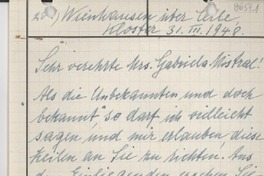 20) Wienhausen über Celle,
Kloster 31. III. 1948.
Sehr verehrte Mrs. Gabriela Mistral!
Als die Unbekannten und doch
bekannt", so darf ich vielleicht
sagen, und mir erlauben, diese
Zeilen an Sie zu richten. Aus